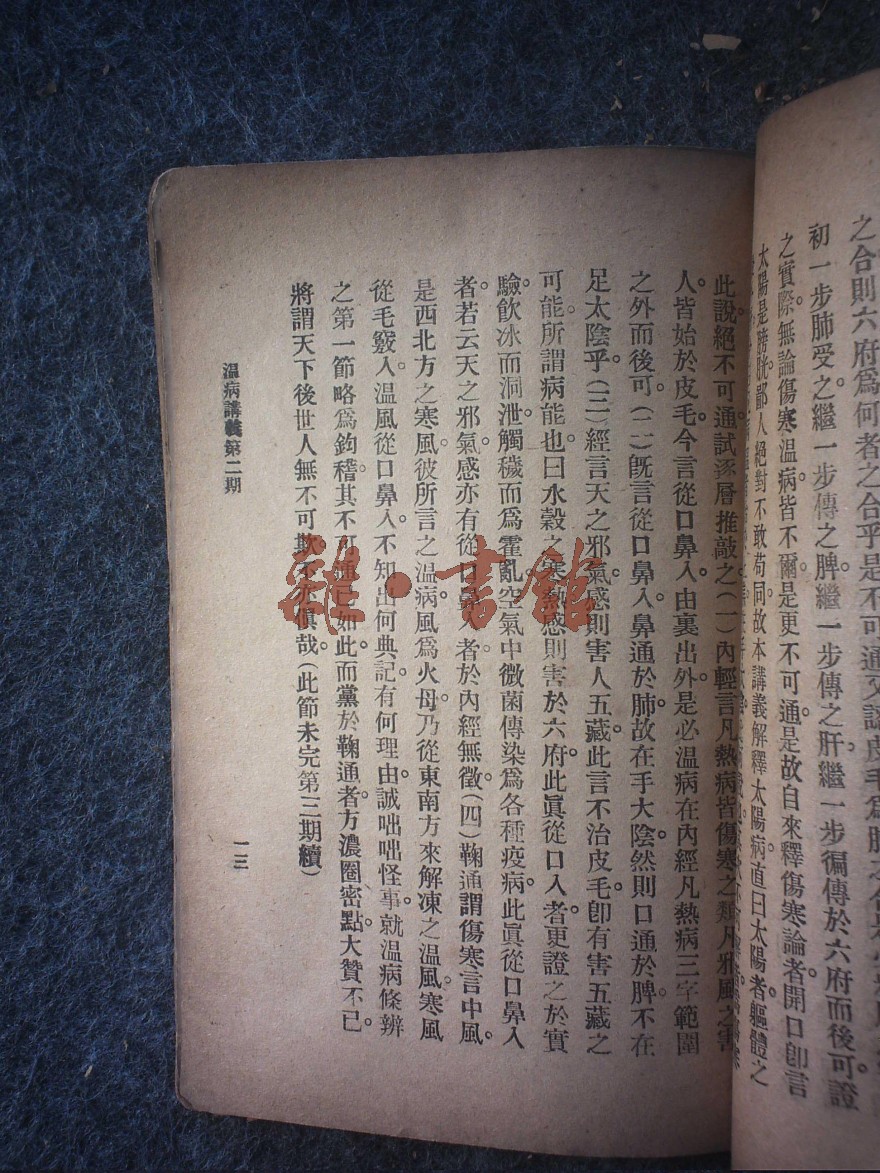 之合則六府爲何者之合乎是不可通又謂皮毛爲肺之合
初一步肺受之繼一步傳之脾繼一步傳之肝繼一步徧傳於六府而後可證
之實際無論傷寒溫病皆不爾是更不可通是故自來釋傷寒論者開口卽言
太陽是膀胱鄙人絕對不敢苟同故本講義解釋太陽病直曰太陽者軀體之
此說絕不可通試逐層推敲之(一)內輕言凡熱病皆傷寒之類凡邪風之害
人。皆始於皮毛。今言從口鼻入。由裏出外。是必溫病在內經凡熱病三字範圍
之外而後可。(二)旣言從口鼻入。鼻通於肺。故在手大陰。然則口通於脾。不在
足太陰乎。(三)經言天之邪氣感。則害人五藏。此言不治皮毛。卽有害五藏之
可能。所謂病能也。曰水穀之寒熱感。則害於六府。此眞從口入者。更證之於實
驗。飲冰而洞泄。觸穢而爲霍亂。空氣中微菌傳染爲各種疫病。此眞從口鼻入
者。若云天之邪氣感。亦有從口鼻入者。於內經無徵。(四)鞠通謂傷寒言中風。
是西北方之寒風。彼所言之溫病風爲火母。乃從東南方來解凍之溫風。寒風
從毛竅入。溫風從口鼻入。不知出何典記。有何理由。誠咄咄怪事。就溫病條辨
之第一節略爲鉤稽。其不可通已如此。而黨於鞠通者。方濃圈密點。大贊不已。
將謂天下後世人無不可欺。不亦愼哉。(此節未完第三期續)
溫病講義第二期
一三
雜·書館